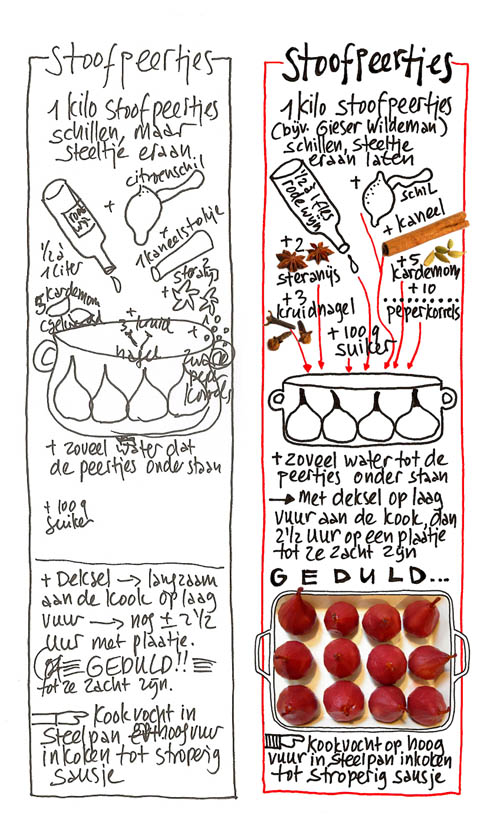 Stoofpeertjes
1 kilo stoofpeertjes
schillen, maar
steeltje eraan.
citroenschil
+
rode
wijn
+
1 kaneelstokje
1/2 à
1 liter
+ 2
steranijs
5 kardemom
+
3 kruid
nagel
+
zwarte
peper
korrels
+ zoveel water dat
de peertjes onder staan
+ 100 g
suiker
+ Deksel → langzaam
aan de kook op laag
vuur → nog ± 2 1/2
uur met plaatje.
GEDULD!!
tot ze zacht zijn.
Kookvocht in
steelpan hoog vuur
inkoken tot stroperig
sausje
Stoofpeertjes
1 kilo stoofpeertjes
(bijv. Gieser Wildeman)
schillen, steeltje
eraan laten
1/2 à 1 fles
rode wijn
+
schil
+ kaneel
+ 2
steranijs
+ 5
kardemom
+ 3
kruidnagel
+ 10
peperkorrels
+ 100 g
suiker
+ zoveel water tot de
peertjes onder staan
→ Met deksel op laag
vuur aan de kook, dan
2 1/2 uur op een plaatje
tot ze zacht zijn
GEDULD...
kookvocht op hoog
vuur in steelpan inkoken
tot stroperig sausje